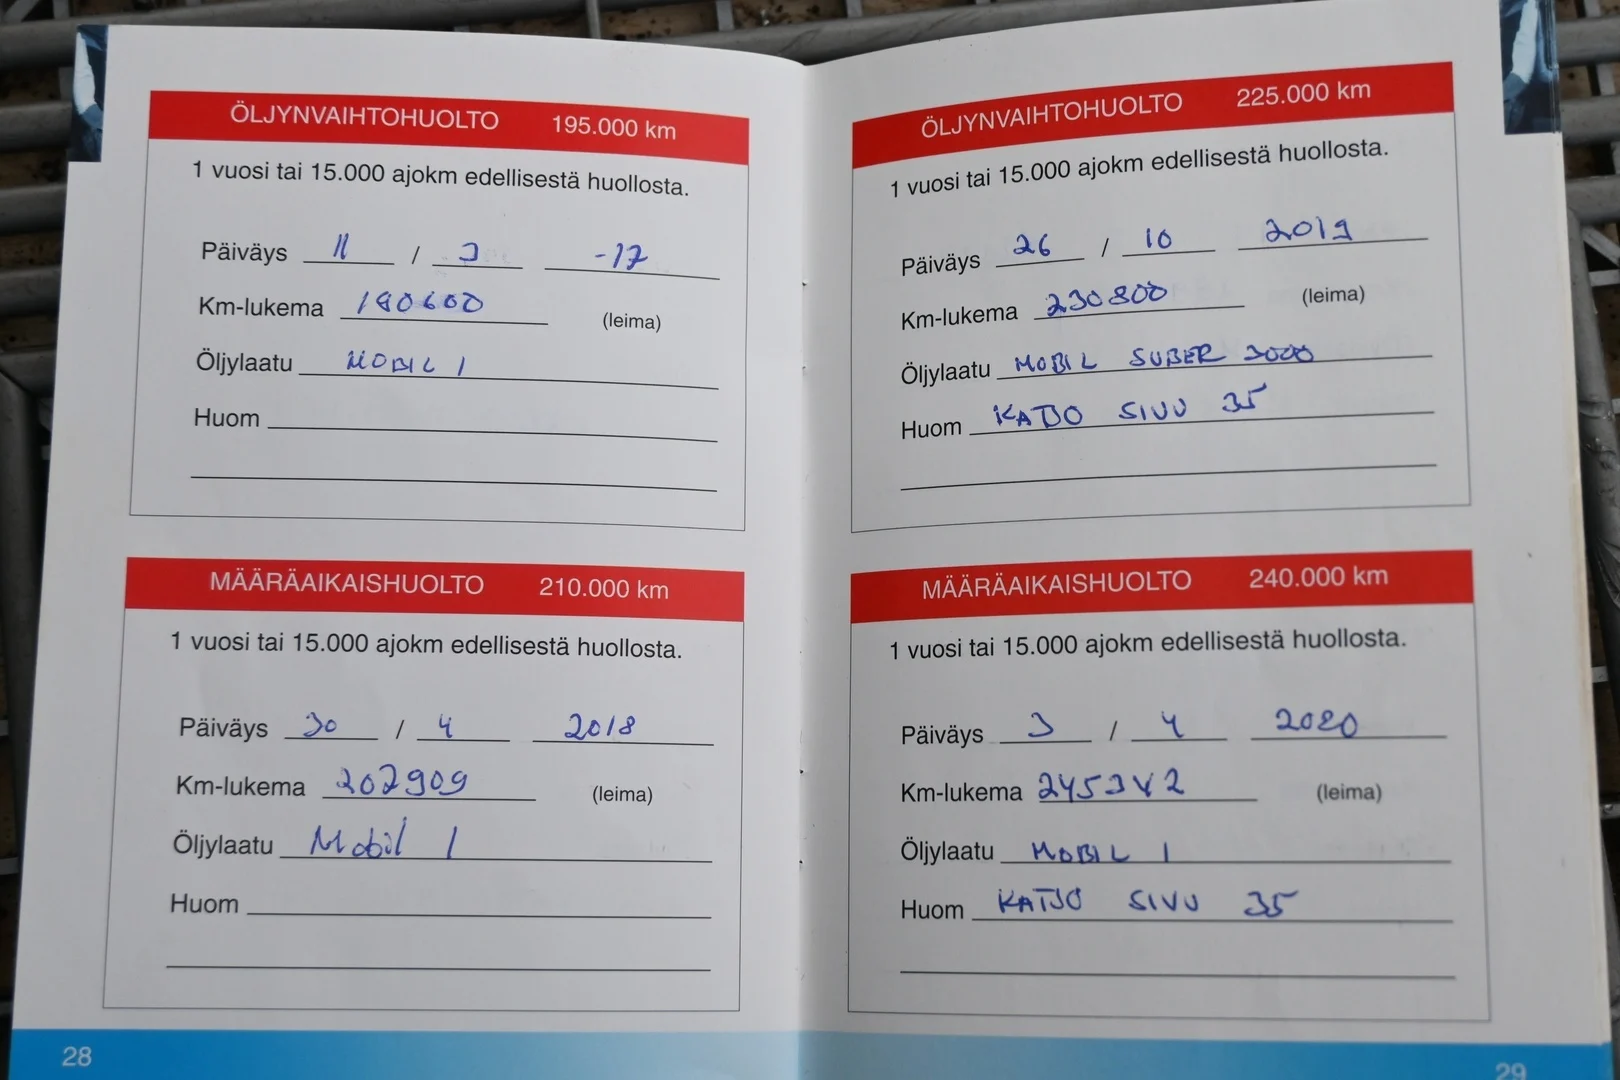 ÖLJYNVAIHTOHUOLTO 195.000 km
1 vuosi tai 15.000 ajokm edellisestä huollosta.
Päiväys 11 / 3 -17
Km-lukema 190600 (leima)
Öljylaatu MOBIL 1
Huom
MÄÄRÄAIKAISHUOLTO 210.000 km
1 vuosi tai 15.000 ajokm edellisestä huollosta.
Päiväys 30 / 4 2018
Km-lukema 207909 (leima)
Öljylaatu Mobil 1
Huom
28
ÖLJYNVAIHTOHUOLTO 225.000 km
1 vuosi tai 15.000 ajokm edellisestä huollosta.
Päiväys 26 / 10 2019
Km-lukema 230800 (leima)
Öljylaatu MOBIL SUBER 3000
Huom KATSO SIVU 35
MÄÄRÄAIKAISHUOLTO 240.000 km
1 vuosi tai 15.000 ajokm edellisestä huollosta.
Päiväys 3 / 4 2020
Km-lukema 245342 (leima)
Öljylaatu MOBIL 1
Huom KATSO SIVU 35
29